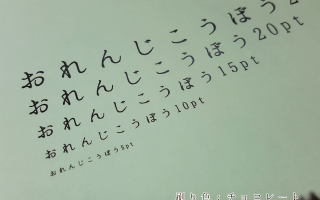 おれんじこうぼう2
おれんじこうぼう20pt
おれんじこうぼう15pt
おれんじこうぼう10pt
おれんじこうぼう8pt
刷り色：チョコレート